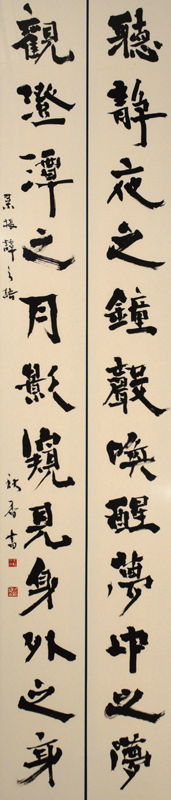 聽静夜之鐘聲喚醒夢中之夢
觀澄潭之月影窺見身外之身
菜根譚句